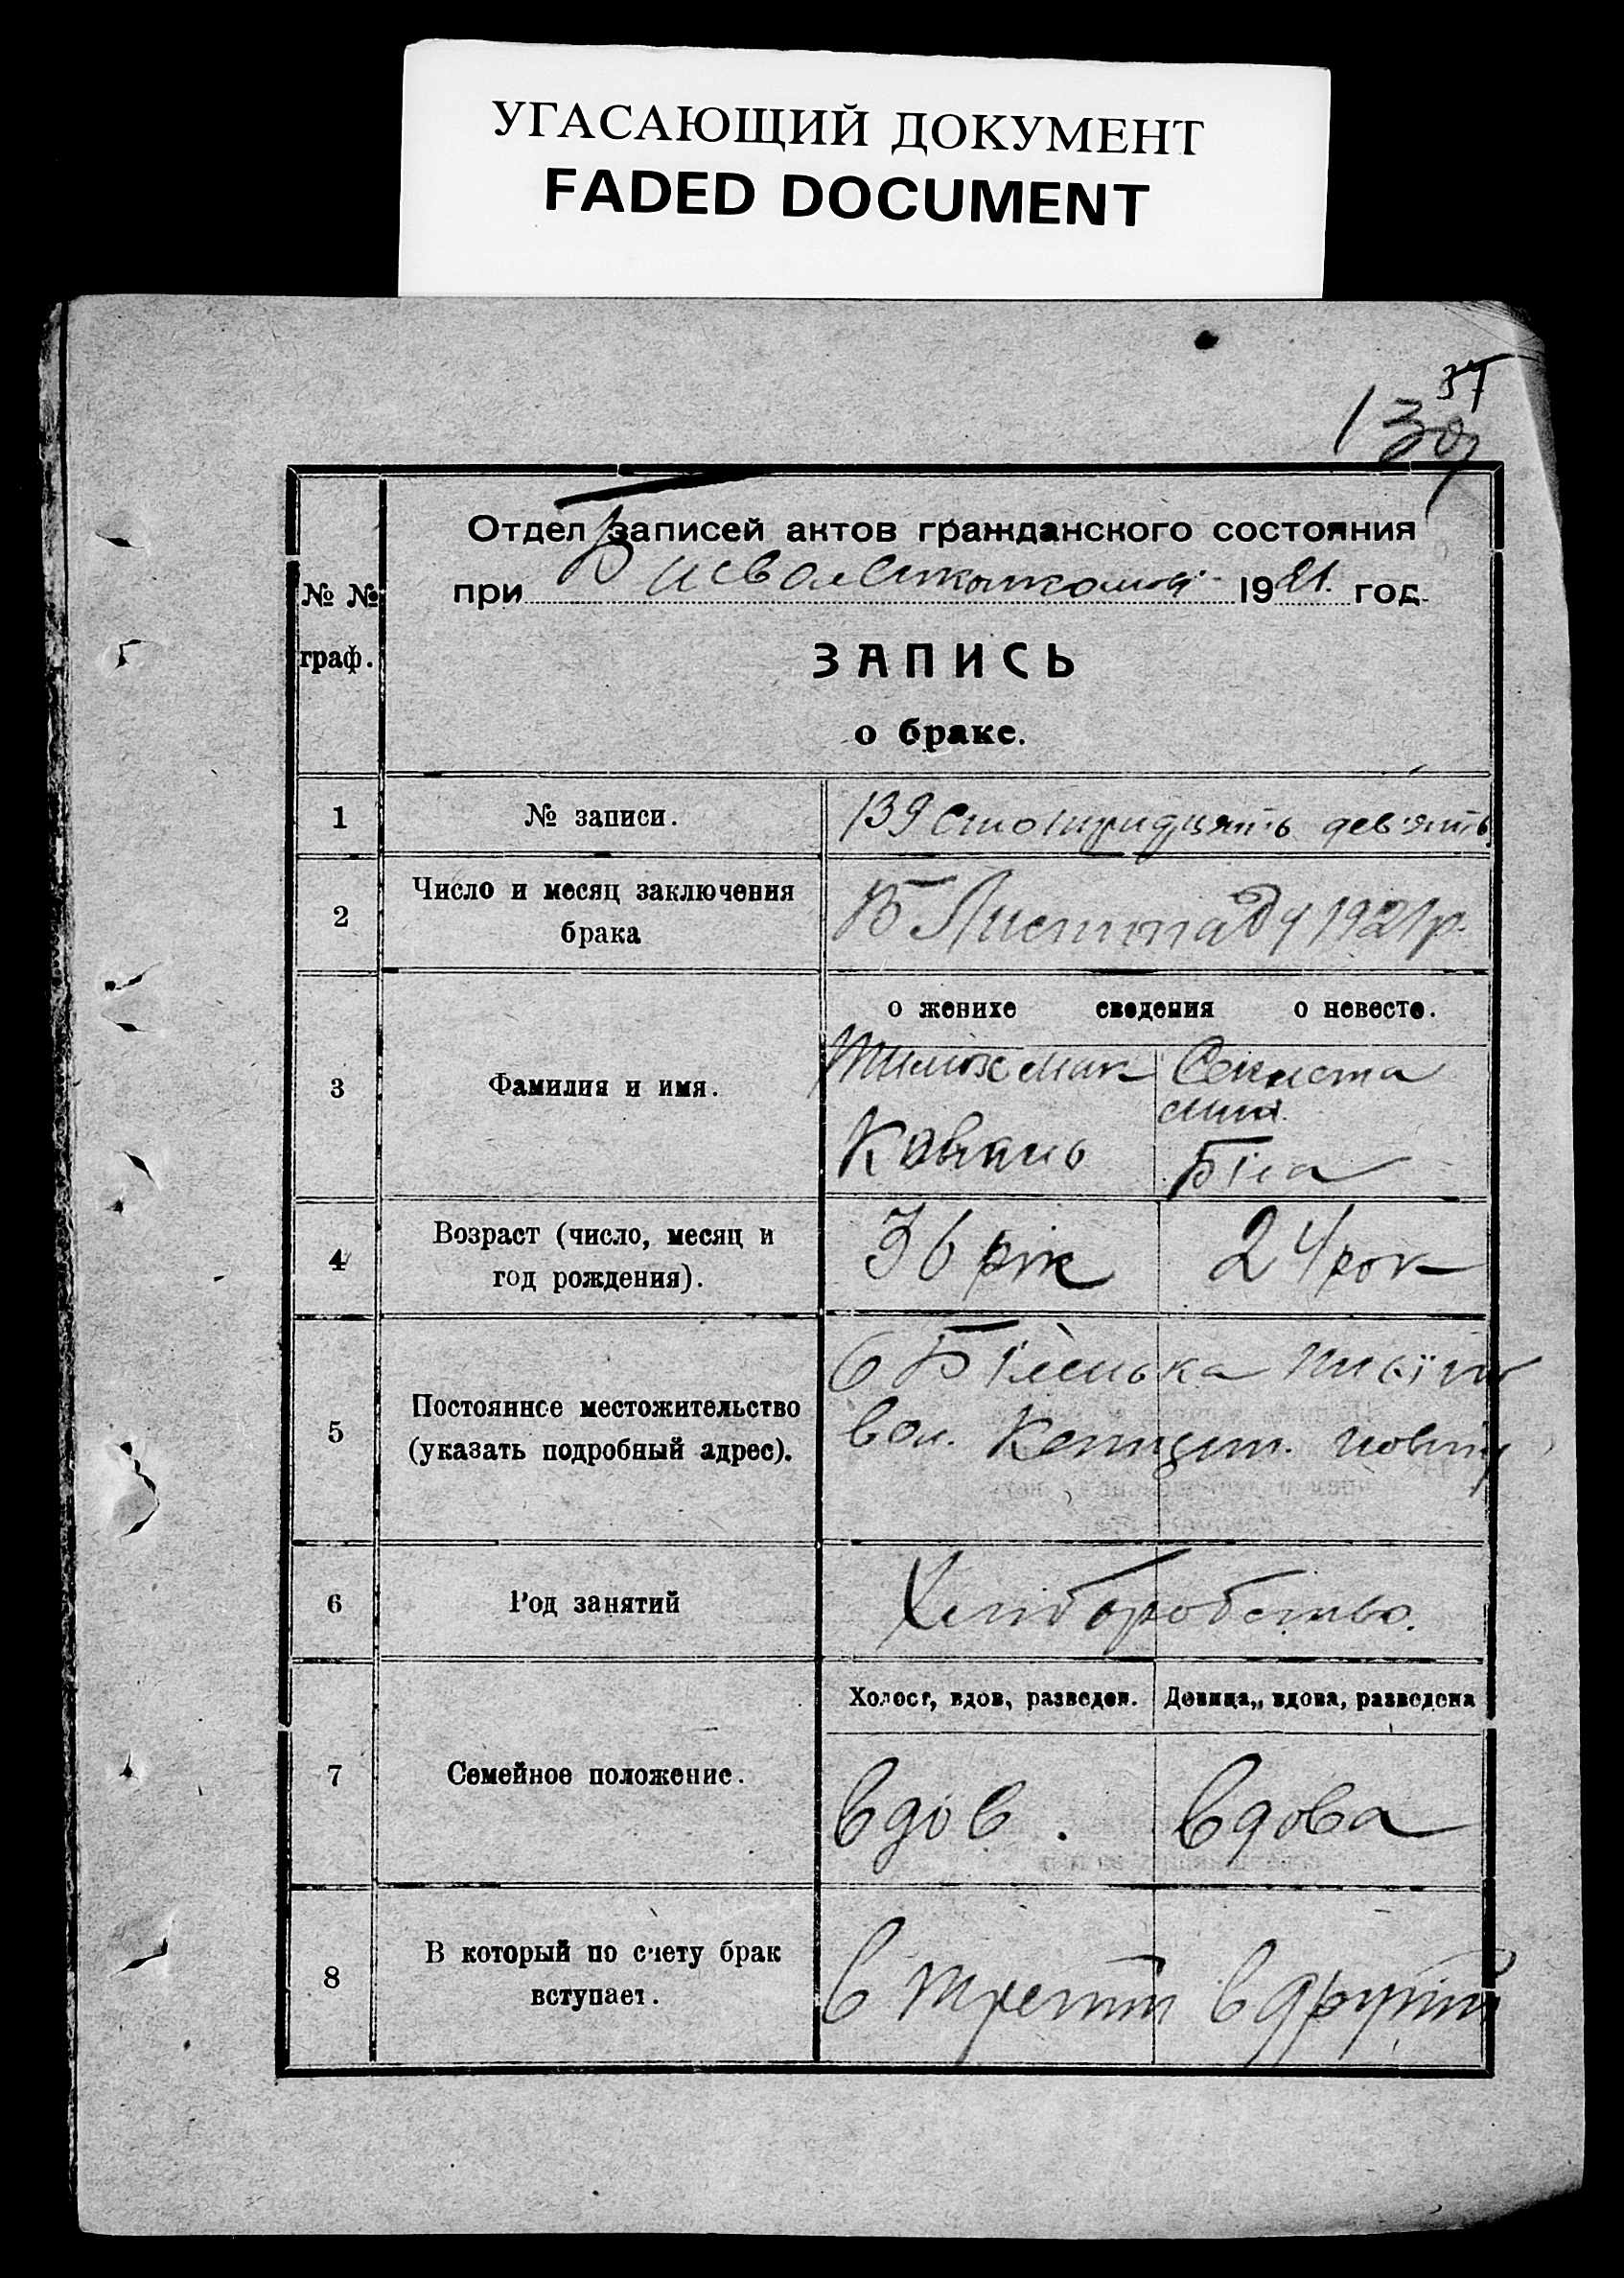 УГАСАЮЩИЙ ДОКУМЕНТ
FADED DOCUMENT
37
139
Отдел записей актов гражданского состояния
при 1921 год.
№ №
граф.
ЗАПИСЬ
о браке.
1 № записи. 139 Сто тридцять девʼять
2 Число и месяц заключения
брака
Листопаду 1921р.
о женихе сведения о невесте.
3 Фамилия и имя.
Біла
4 Возраст (число, месяц и
год рождения).
36 рік 24 рок
5 Постоянное местожительство
(указать подробный адрес).
вол. повіту
6 Род занятий Хліборобство.
Холост, вдов, разведен. Девица,, вдова, разведена
7 Семейное положение.
вдов. вдова
8 В который по счету брак
вступает.
в третій в другій